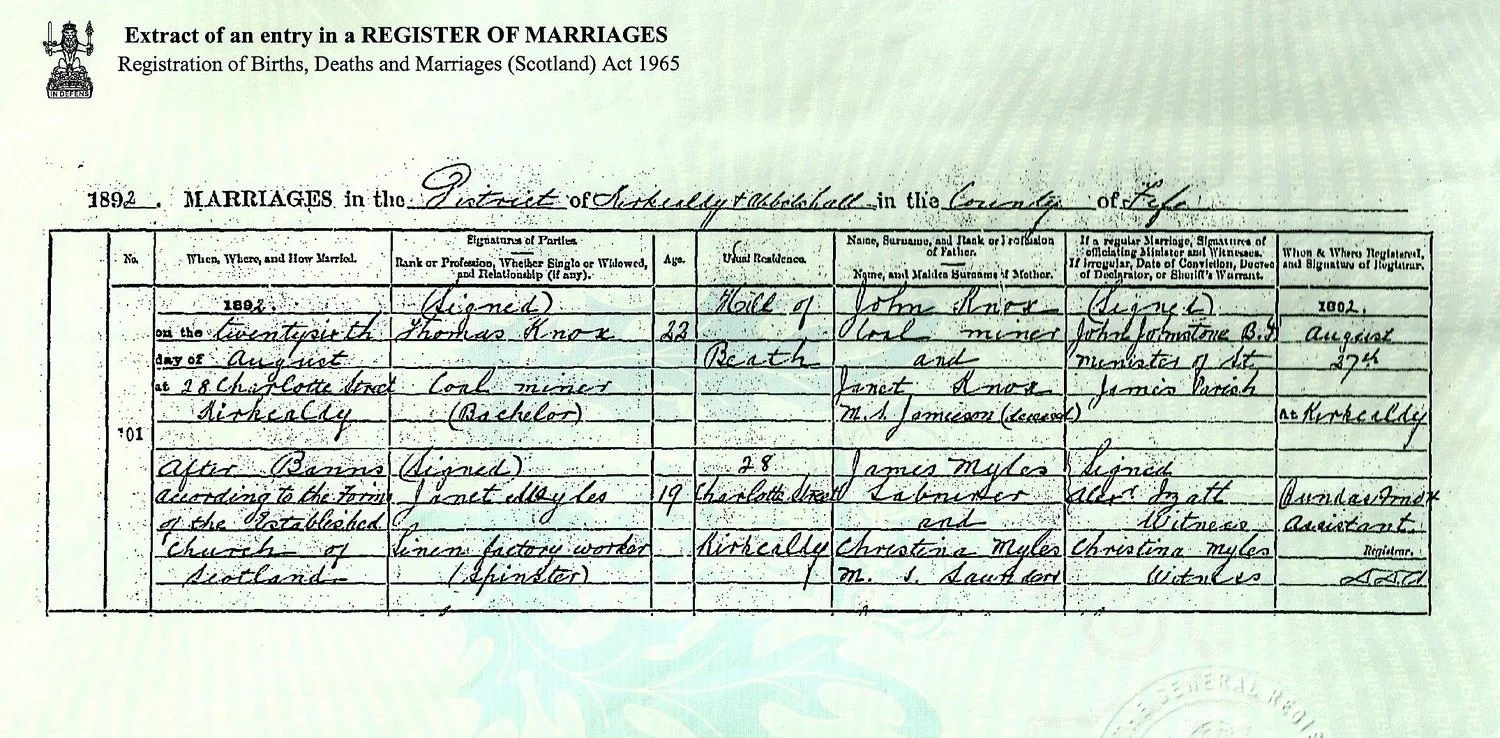 Extract of an entry in a REGISTER OF MARRIAGES
Registration of Births, Deaths and Marriages (Scotland) Act 1965
IN DEFENS
1892. MARRIAGES in the District of Kirkcaldy & Abbotshall in the County of Fife
No.
When, Where, and How Married.
Signatures of Parties.
Rank or Profession, Whether Single or Widowed, and Relationship (if any).
Age.
Usual Residence.
Name, Surname, and Rank or Profession of Father.
Name, and Maiden Surname of Mother.
If a regular Marriage, Signatures of officiating Minister and Witnesses.
If irregular, Date of Conviction, Decree of Declarator, or Sheriff's Warrant.
When & Where Registered, and Signature of Registrar.
101
1892.
on the twentysixth
day of August
at 28 Charlotte Street
Kirkcaldy
After Banns
according to the Forms
of the Established
Church of
Scotland
(Signed)
Thomas Knox
Coal miner
(Bachelor)
(Signed)
Janet Myles
Linen factory worker
(Spinster)
22
19
Hill of
Beath
28
Charlotte Street
Kirkcaldy
John Knox
Coal miner
and
Janet Knox
M.S. Jamieson (deceased)
James Myles
Labourer
and
Christina Myles
M. S. Saunders
(Signed)
John Johnstone B.D.
Minister of St.
James Parish
Signed
Alexr. Izatt
Witness
Christina Myles
Witness
1892.
August
27th
At Kirkcaldy
Dundas
Assistant
Registrar.
THE GENERAL REGIS